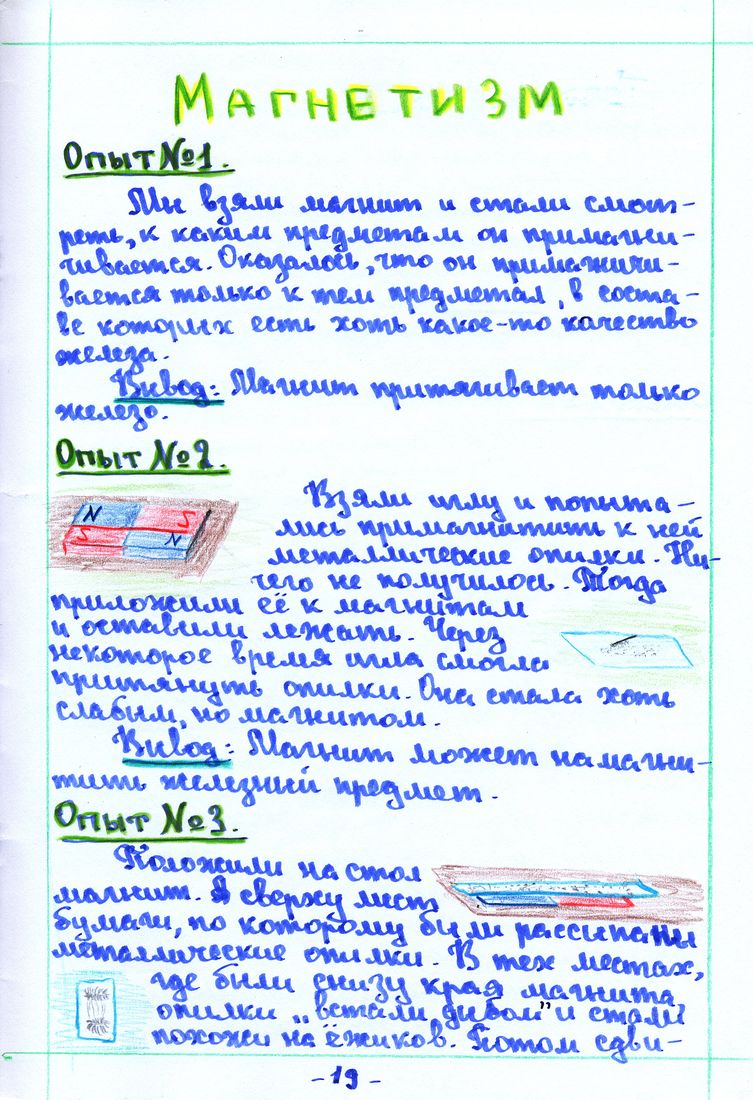 МАГНЕТИЗМ
Опыт №1.
Мы взяли магнит и стали смот-
реть, к каким предметам он примагни-
чивается. Оказалось, что он примагничи-
вается только к тем предметам, в соста-
ве которых есть хоть какое-то качество
железа.
Вывод: Магнит притягивает только
железо.
Опыт №2.
Взяли иглу и попыта-
лись примагнитить к ней
металлические опилки. Ни-
чего не получилось. Тогда
приложили её к магнитам
и оставили лежать. Через
некоторое время игла смогла
притянуть опилки. Она стала хоть
слабым, но магнитом.
Вывод: Магнит может намагни-
тить железный предмет.
N S
S N
Опыт №3.
Положили на стол
магнит. А сверху лист
бумаги, по которому были рассыпаны
металлические опилки. В тех местах,
где были снизу края магнита,
опилки „встали дыбом" и стали
похожи на ёжиков. Потом сдви-
- 19 -